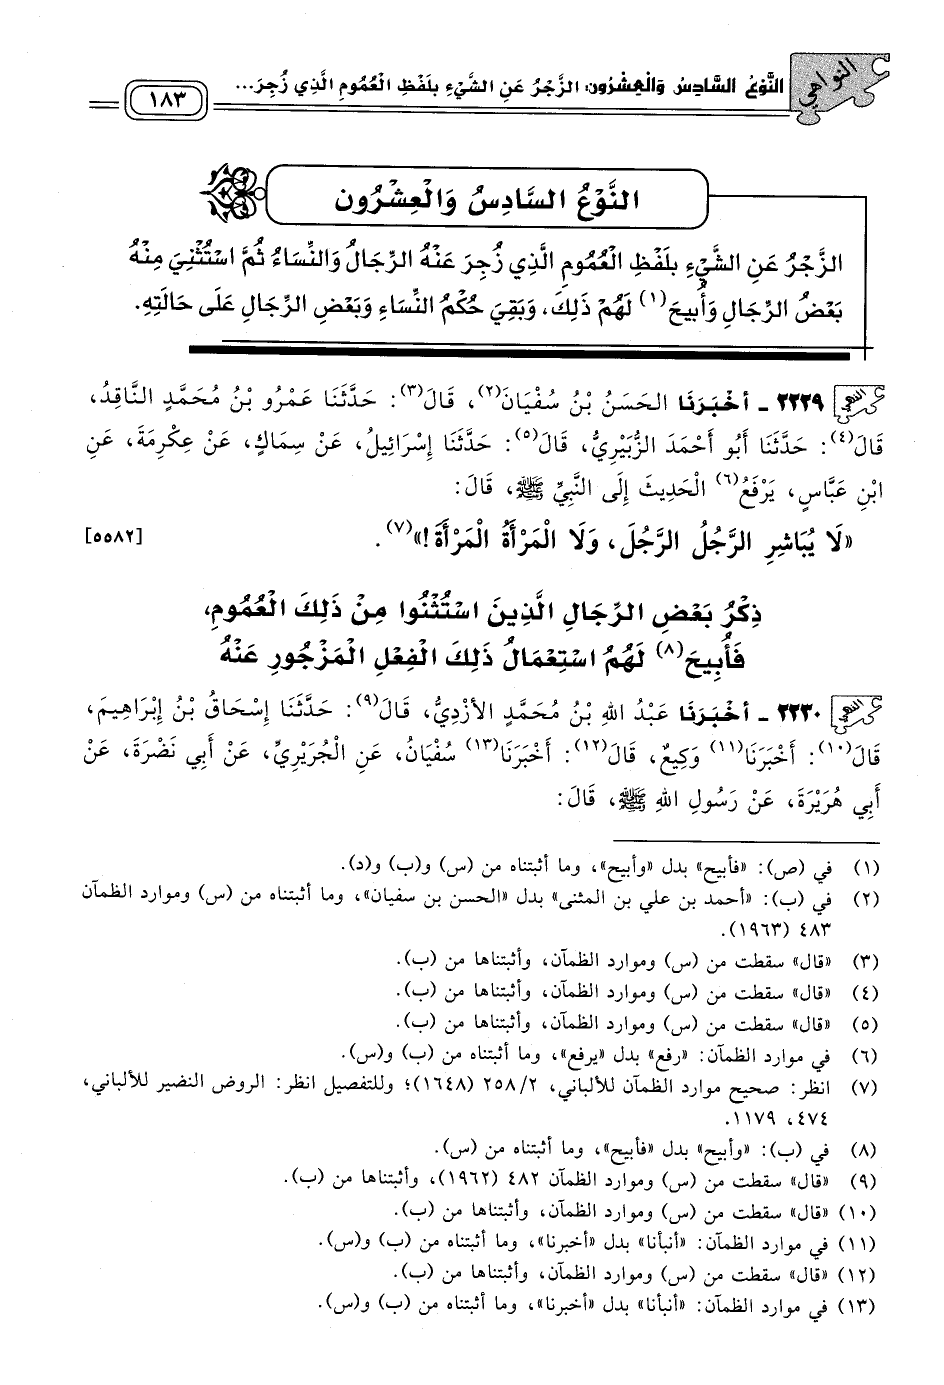 النواهي
النَّوْعُ السَّادِسُ وَالْعِشْرُونَ: الزَّجْرُ عَنِ الشَّيْءِ بِلَفْظِ الْعُمُومِ الَّذِي زُجِرَ...
١٨٣
النَّوْعُ السَّادِسُ وَالْعِشْرُون
الزَّجْرُ عَنِ الشَّيْءِ بِلَفْظِ الْعُمُومِ الَّذِي زُجِرَ عَنْهُ الرِّجَالُ وَالنِّسَاءُ ثُمَّ اسْتُثْنِيَ مِنْهُ
بَعْضُ الرِّجَالِ وَأُبِيحَ(١) لَهُمْ ذَلِكَ، وَبَقِيَ حُكْمُ النِّسَاءِ وَبَعْضِ الرِّجَالِ عَلَى حَالَتِهِ.
٢٢٢٩ ـ أَخْبَرَنَا الحَسَنُ بْنُ سُفْيَانَ(٢)، قَالَ(٣): حَدَّثَنَا عَمْرُو بْنُ مُحَمَّدٍ النَّاقِدُ،
قَالَ(٤): حَدَّثَنَا أَبُو أَحْمَدَ الزُّبَيْرِيُّ، قَالَ(٥): حَدَّثَنَا إِسْرَائِيلُ، عَنْ سِمَاكٍ، عَنْ عِكْرِمَةَ، عَنِ
ابْنِ عَبَّاسٍ، يَرْفَعُ(٦) الْحَدِيثَ إِلَى النَّبِيِّ ﷺ، قَالَ:
«لَا يُبَاشِرِ الرَّجُلُ الرَّجُلَ، وَلَا الْمَرْأَةُ الْمَرْأَةَ!»(٧). [٥٥٨٢]
ذِكْرُ بَعْضِ الرِّجَالِ الَّذِينَ اسْتُثْنُوا مِنْ ذَلِكَ الْعُمُومِ،
فَأُبِيحَ(٨) لَهُمُ اسْتِعْمَالُ ذَلِكَ الْفِعْلِ الْمَزْجُورِ عَنْهُ
٢٢٣٠ ـ أَخْبَرَنَا عَبْدُ اللهِ بْنُ مُحَمَّدٍ الأَزْدِيُّ، قَالَ(٩): حَدَّثَنَا إِسْحَاقُ بْنُ إِبْرَاهِيمَ،
قَالَ(١٠): أَخْبَرَنَا(١١) وَكِيعٌ، قَالَ(١٢): أَخْبَرَنَا(١٣) سُفْيَانُ، عَنِ الْجُرَيْرِيِّ، عَنْ أَبِي نَضْرَةَ، عَنْ
أَبِي هُرَيْرَةَ، عَنْ رَسُولِ اللهِ ﷺ، قَالَ:
(١) في (ص): «فأبيح» بدل «وأبيح»، وما أثبتناه من (س) و(ب) و(د).
(٢) في (ب): «أحمد بن علي بن المثنى» بدل «الحسن بن سفيان»، وما أثبتناه من (س) وموارد الظمآن
٤٨٣ (١٩٦٣).
(٣) «قال» سقطت من (س) وموارد الظمآن، وأثبتناها من (ب).
(٤) «قال» سقطت من (س) وموارد الظمآن، وأثبتناها من (ب).
(٥) «قال» سقطت من (س) وموارد الظمآن، وأثبتناها من (ب).
(٦) في موارد الظمآن: «رفع» بدل «يرفع»، وما أثبتناه من (ب) و(س).
(٧) انظر: صحيح موارد الظمآن للألباني، ٢/ ٢٥٨ (١٦٤٨)؛ وللتفصيل انظر: الروض النضير للألباني،
٤٧٤، ١١٧٩.
(٨) في (ب): «وأبيح» بدل «فأبيح»، وما أثبتناه من (س).
(٩) «قال» سقطت من (س) وموارد الظمآن ٤٨٢ (١٩٦٢)، وأثبتناها من (ب).
(١٠) «قال» سقطت من (س) وموارد الظمآن، وأثبتناها من (ب).
(١١) في موارد الظمآن: «أنبأنا» بدل «أخبرنا»، وما أثبتناه من (ب) و(س).
(١٢) «قال» سقطت من (س) وموارد الظمآن، وأثبتناها من (ب).
(١٣) في موارد الظمآن: «أنبأنا» بدل «أخبرنا»، وما أثبتناه من (ب) و(س).